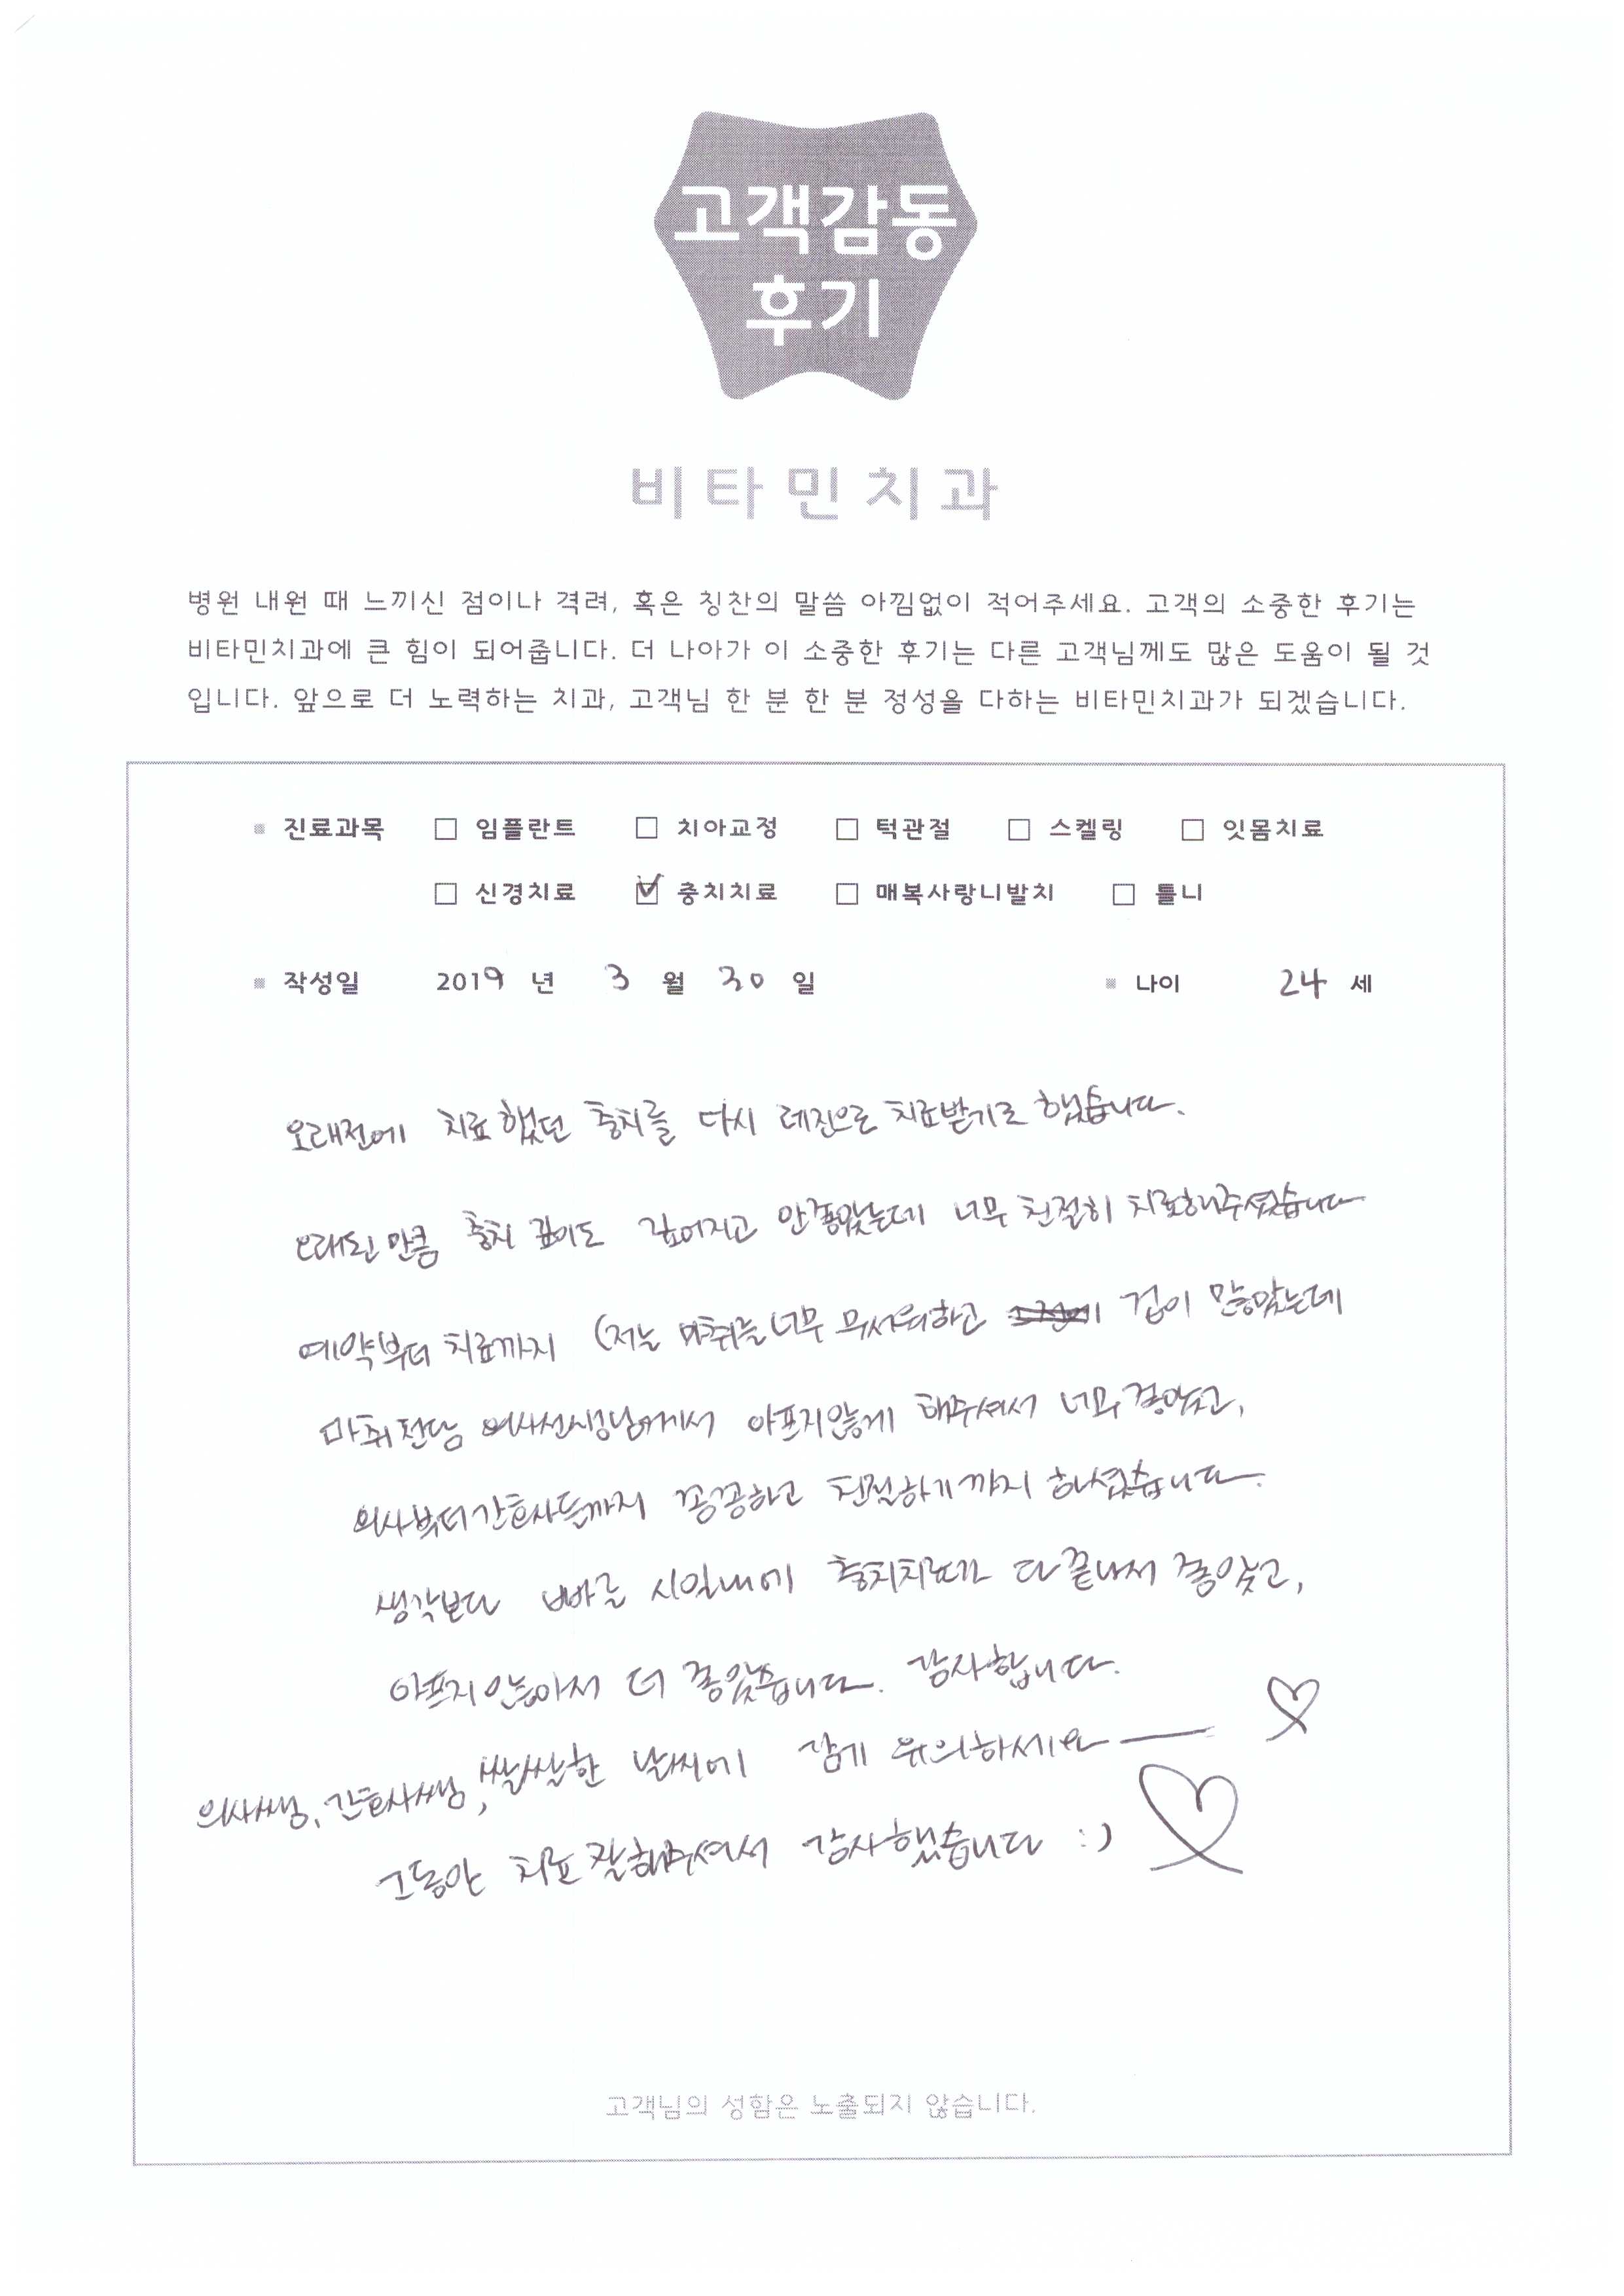 고객감동
후기
비타민치과
병원 내원 때 느끼신 점이나 격려, 혹은 칭찬의 말씀 아낌없이 적어주세요. 고객의 소중한 후기는
비타민치과에 큰 힘이 되어줍니다. 더 나아가 이 소중한 후기는 다른 고객님께도 많은 도움이 될 것
입니다. 앞으로 더 노력하는 치과, 고객님 한 분 한 분 정성을 다하는 비타민치과가 되겠습니다.
진료과목 □ 임플란트 □ 치아교정 □ 턱관절 □ 스켈링 □ 잇몸치료
□ 신경치료 ☑ 충치치료 □ 매복사랑니발치 □ 틀니
작성일 2019 년 3 월 30 일 나이 24 세
오래전에 치료했던 충치를 다시 레진으로 치료받기로 했습니다.
오래된 만큼 충치 깊이도 깊어지고 안좋았는데 너무 친절히 치료해주셨습니다
예약부터 치료까지 (저는 마취를 너무 무서워하고 겁이 많았는데
마취 전담 의사선생님께서 아프지않게 해주셔서 너무 좋았고,
의사부터 간호사들까지 꼼꼼하고 친절하기까지 하셨습니다.
생각보다 빠른 시일내에 충치치료가 다 끝나서 좋았고,
아프지 않아서 더 좋았습니다. 감사합니다.
의사쌤, 간호사쌤, 쌀쌀한 날씨에 감기 유의하세요
그동안 치료 잘해주셔서 감사했습니다 :)
고객님의 성함은 노출되지 않습니다.